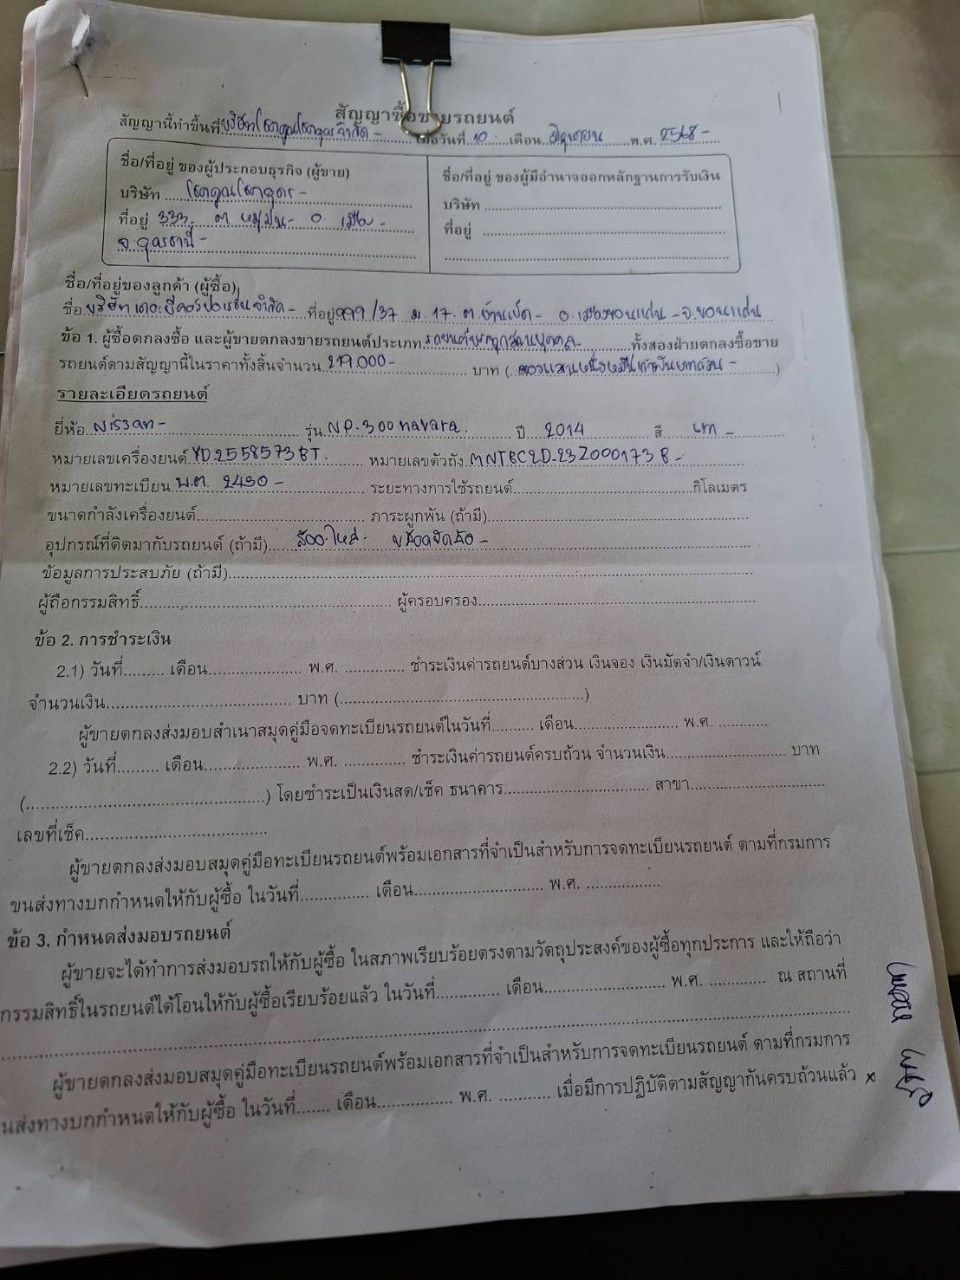 สัญญาซื้อขายรถยนต์
สัญญานี้ทำขึ้นที่ บริษัทโชคคูณโชคอุดรจำกัด- เมื่อวันที่ 10 เดือน มิถุนายน พ.ศ. 2568-
ชื่อ/ที่อยู่ ของผู้ประกอบธุรกิจ (ผู้ขาย)
บริษัท โชคคูณโชคอุดร-
ที่อยู่ 333 ต. หมูม่น- อ. เมือง-
จ. อุดรธานี-
ชื่อ/ที่อยู่ ของผู้มีอำนาจออกหลักฐานการรับเงิน
บริษัท
ที่อยู่
ชื่อ/ที่อยู่ของลูกค้า (ผู้ซื้อ)
ชื่อ บริษัท จำกัด- ที่อยู่ 999/37 ม. 17 ต. บ้านเป็ด- อ. เมืองขอนแก่น- จ. ขอนแก่น
ข้อ 1. ผู้ซื้อตกลงซื้อ และผู้ขายตกลงขายรถยนต์ประเภท รถยนต์บรรทุกส่วนบุคคล ทั้งสองฝ่ายตกลงซื้อขาย
รถยนต์ตามสัญญานี้ในราคาทั้งสิ้นจำนวน 219.000- บาท (สองแสนหนึ่งหมื่นเก้าพันบาทถ้วน-)
รายละเอียดรถยนต์
ยี่ห้อ Nissan- รุ่น N.P-300 navara. ปี 2014 สี เทา-
หมายเลขเครื่องยนต์ YD2558573BT. หมายเลขตัวถัง MNTBC2D-23Z0001738-
หมายเลขทะเบียน 2490- ระยะทางการใช้รถยนต์ กิโลเมตร
ขนาดกำลังเครื่องยนต์ ภาระผูกพัน (ถ้ามี)
อุปกรณ์ที่ติดมากับรถยนต์ (ถ้ามี) ล้อใหม่-
ข้อมูลการประสบภัย (ถ้ามี)
ผู้ถือกรรมสิทธิ์ ผู้ครอบครอง
ข้อ 2. การชำระเงิน
2.1) วันที่ เดือน พ.ศ. ชำระเงินค่ารถยนต์บางส่วน เงินจอง เงินมัดจำ/เงินดาวน์
จำนวนเงิน บาท ( )
ผู้ขายตกลงส่งมอบสำเนาสมุดคู่มือจดทะเบียนรถยนต์ในวันที่ เดือน พ.ศ.
2.2) วันที่ เดือน พ.ศ. ชำระเงินค่ารถยนต์ครบถ้วน จำนวนเงิน บาท
( ) โดยชำระเป็นเงินสด/เช็ค ธนาคาร สาขา
เลขที่เช็ค
ผู้ขายตกลงส่งมอบสมุดคู่มือทะเบียนรถยนต์พร้อมเอกสารที่จำเป็นสำหรับการจดทะเบียนรถยนต์ ตามที่กรมการ
ขนส่งทางบกกำหนดให้กับผู้ซื้อ ในวันที่ เดือน พ.ศ.
ข้อ 3. กำหนดส่งมอบรถยนต์
ผู้ขายจะได้ทำการส่งมอบรถให้กับผู้ซื้อ ในสภาพเรียบร้อยตรงตามวัตถุประสงค์ของผู้ซื้อทุกประการ และให้ถือว่า
กรรมสิทธิ์ในรถยนต์ได้โอนให้กับผู้ซื้อเรียบร้อยแล้ว ในวันที่ เดือน พ.ศ. ณ สถานที่
ผู้ขายตกลงส่งมอบสมุดคู่มือทะเบียนรถยนต์พร้อมเอกสารที่จำเป็นสำหรับการจดทะเบียนรถยนต์ ตามที่กรมการ
นส่งทางบกกำหนดให้กับผู้ซื้อ ในวันที่ เดือน พ.ศ. เมื่อมีการปฏิบัติตามสัญญากันครบถ้วนแล้ว x